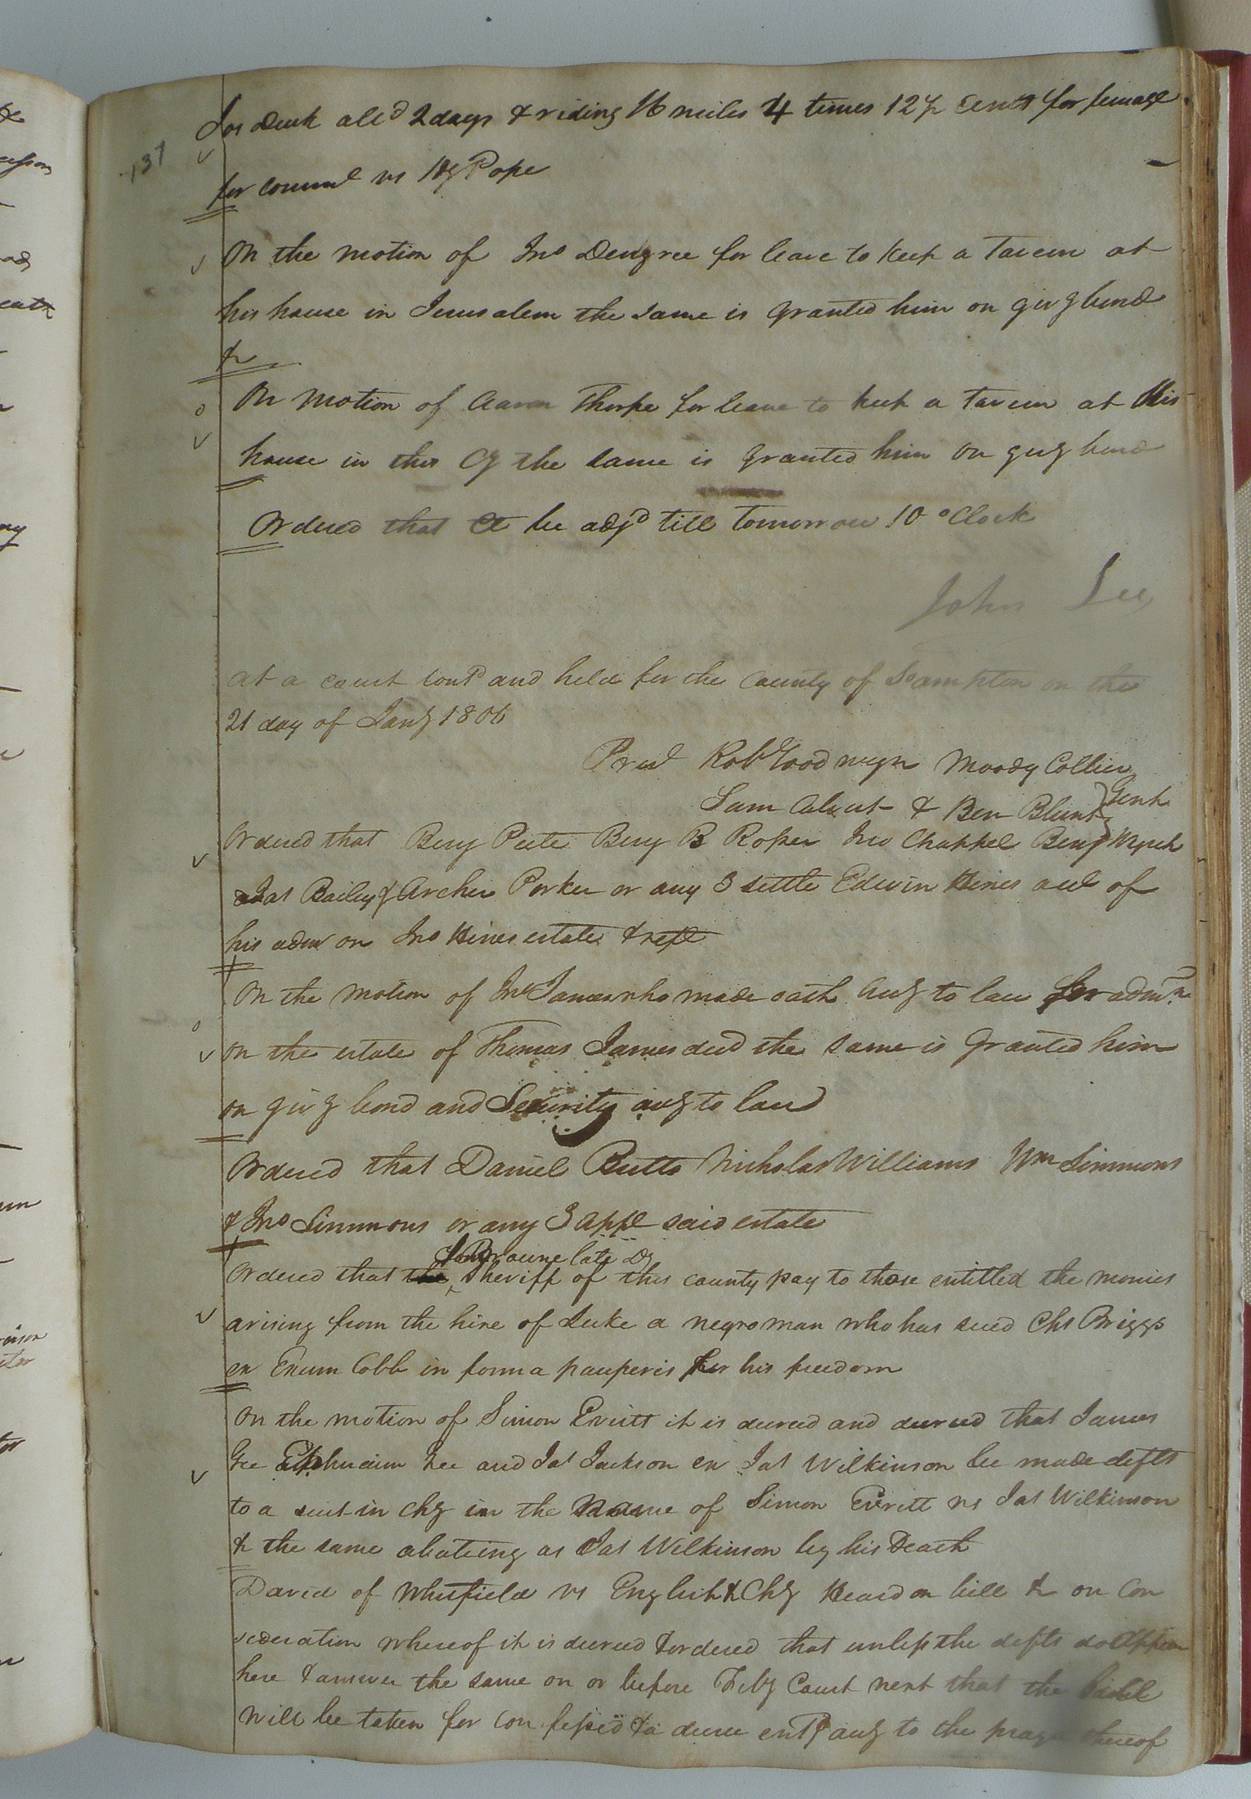 137
Jos Deuk alld 2 days & riding 16 miles 4 times 12½ cents for feriage
for commel vs Hy Pope
On the motion of Jno Dengree for leave to keep a Tavern at
his house in Jerusalem the same is granted him on givg bond
&c
On motion of Aaron Thorpe for leave to keep a Tavern at this
house in this Cy the same is granted him on givg bond
Ordered that Ct be adjd till tomorrow 10 oClock
John Lee
At a court contd and held for the county of So ampton on the
21 day of Jany 1806
Prest Robt Goodwyn Moody Collier
Sam Calvert & Ben Blunt Gent
Ordered that Benj Peete Benj B Roper Jno Chappel Benj Wyche
Jas Bailey & Archer Porker or any 3 settle Edwin Hines acct of
his admr on Jno Hines estate &
On the motion of Jno James who made oath accg to law for admn
on the estate of Thomas James decd the same is granted him
on givg bond and Security accg to law
Ordered that Daniel Butts Nicholas Williams Wm Simmons
& Jno Simmons or any 3 appr said estate
Browne late Dy
Ordered that the Sheriff of this county pay to those entitled the monies
arising from the hire of Luke a negro man who has sued Chs Briggs
ex Exum Cobb in forma pauperis for his freedom
On the motion of Simon Everitt it is decreed and decreed that James
Gee Ephraim Gee and Jas Jackson ex Jas Wilkinson be made defts
to a suit in chy in the name of Simon Everitt vs Jas Wilkinson
& the same abateing as Jas Wilkinson by his Death
David of Whitfield vs English & Chy Heard on bill & on Con
sideration whereof it is decreed & ordered that unless the defts do appear
here & answer the same on or before Feby Court next that the bill
will be taken for confessed & a decree entd accg to the prayer thereof